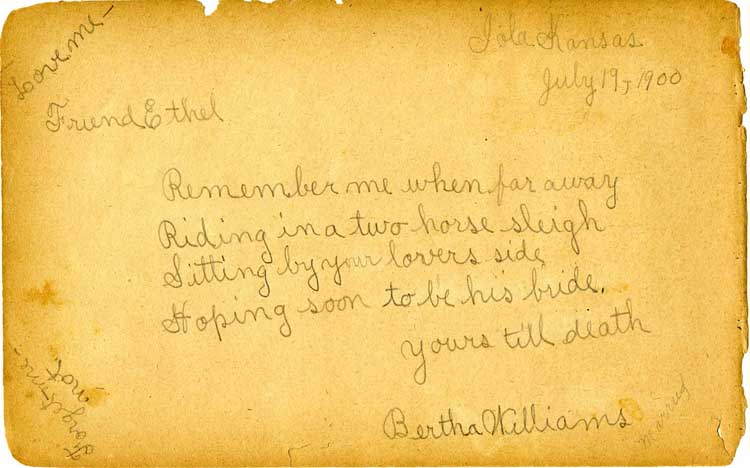 Love me-
Iola Kansas
July 19, 1900
Friend Ethel
Remember me when far away
Riding in a two horse sleigh
Sitting by your lovers side
Hoping soon to be his bride.
yours till death
Bertha Williams
Forget-me-
not.
Married